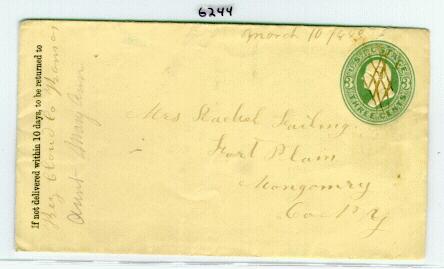 6244
March 10
U.S. POSTAGE
THREE CENTS
If not delivered within 10 days, to be returned to
Aunt Mary Ann
Mrs Rachel Failing
Fort Plain
Montgomry
Co N Y